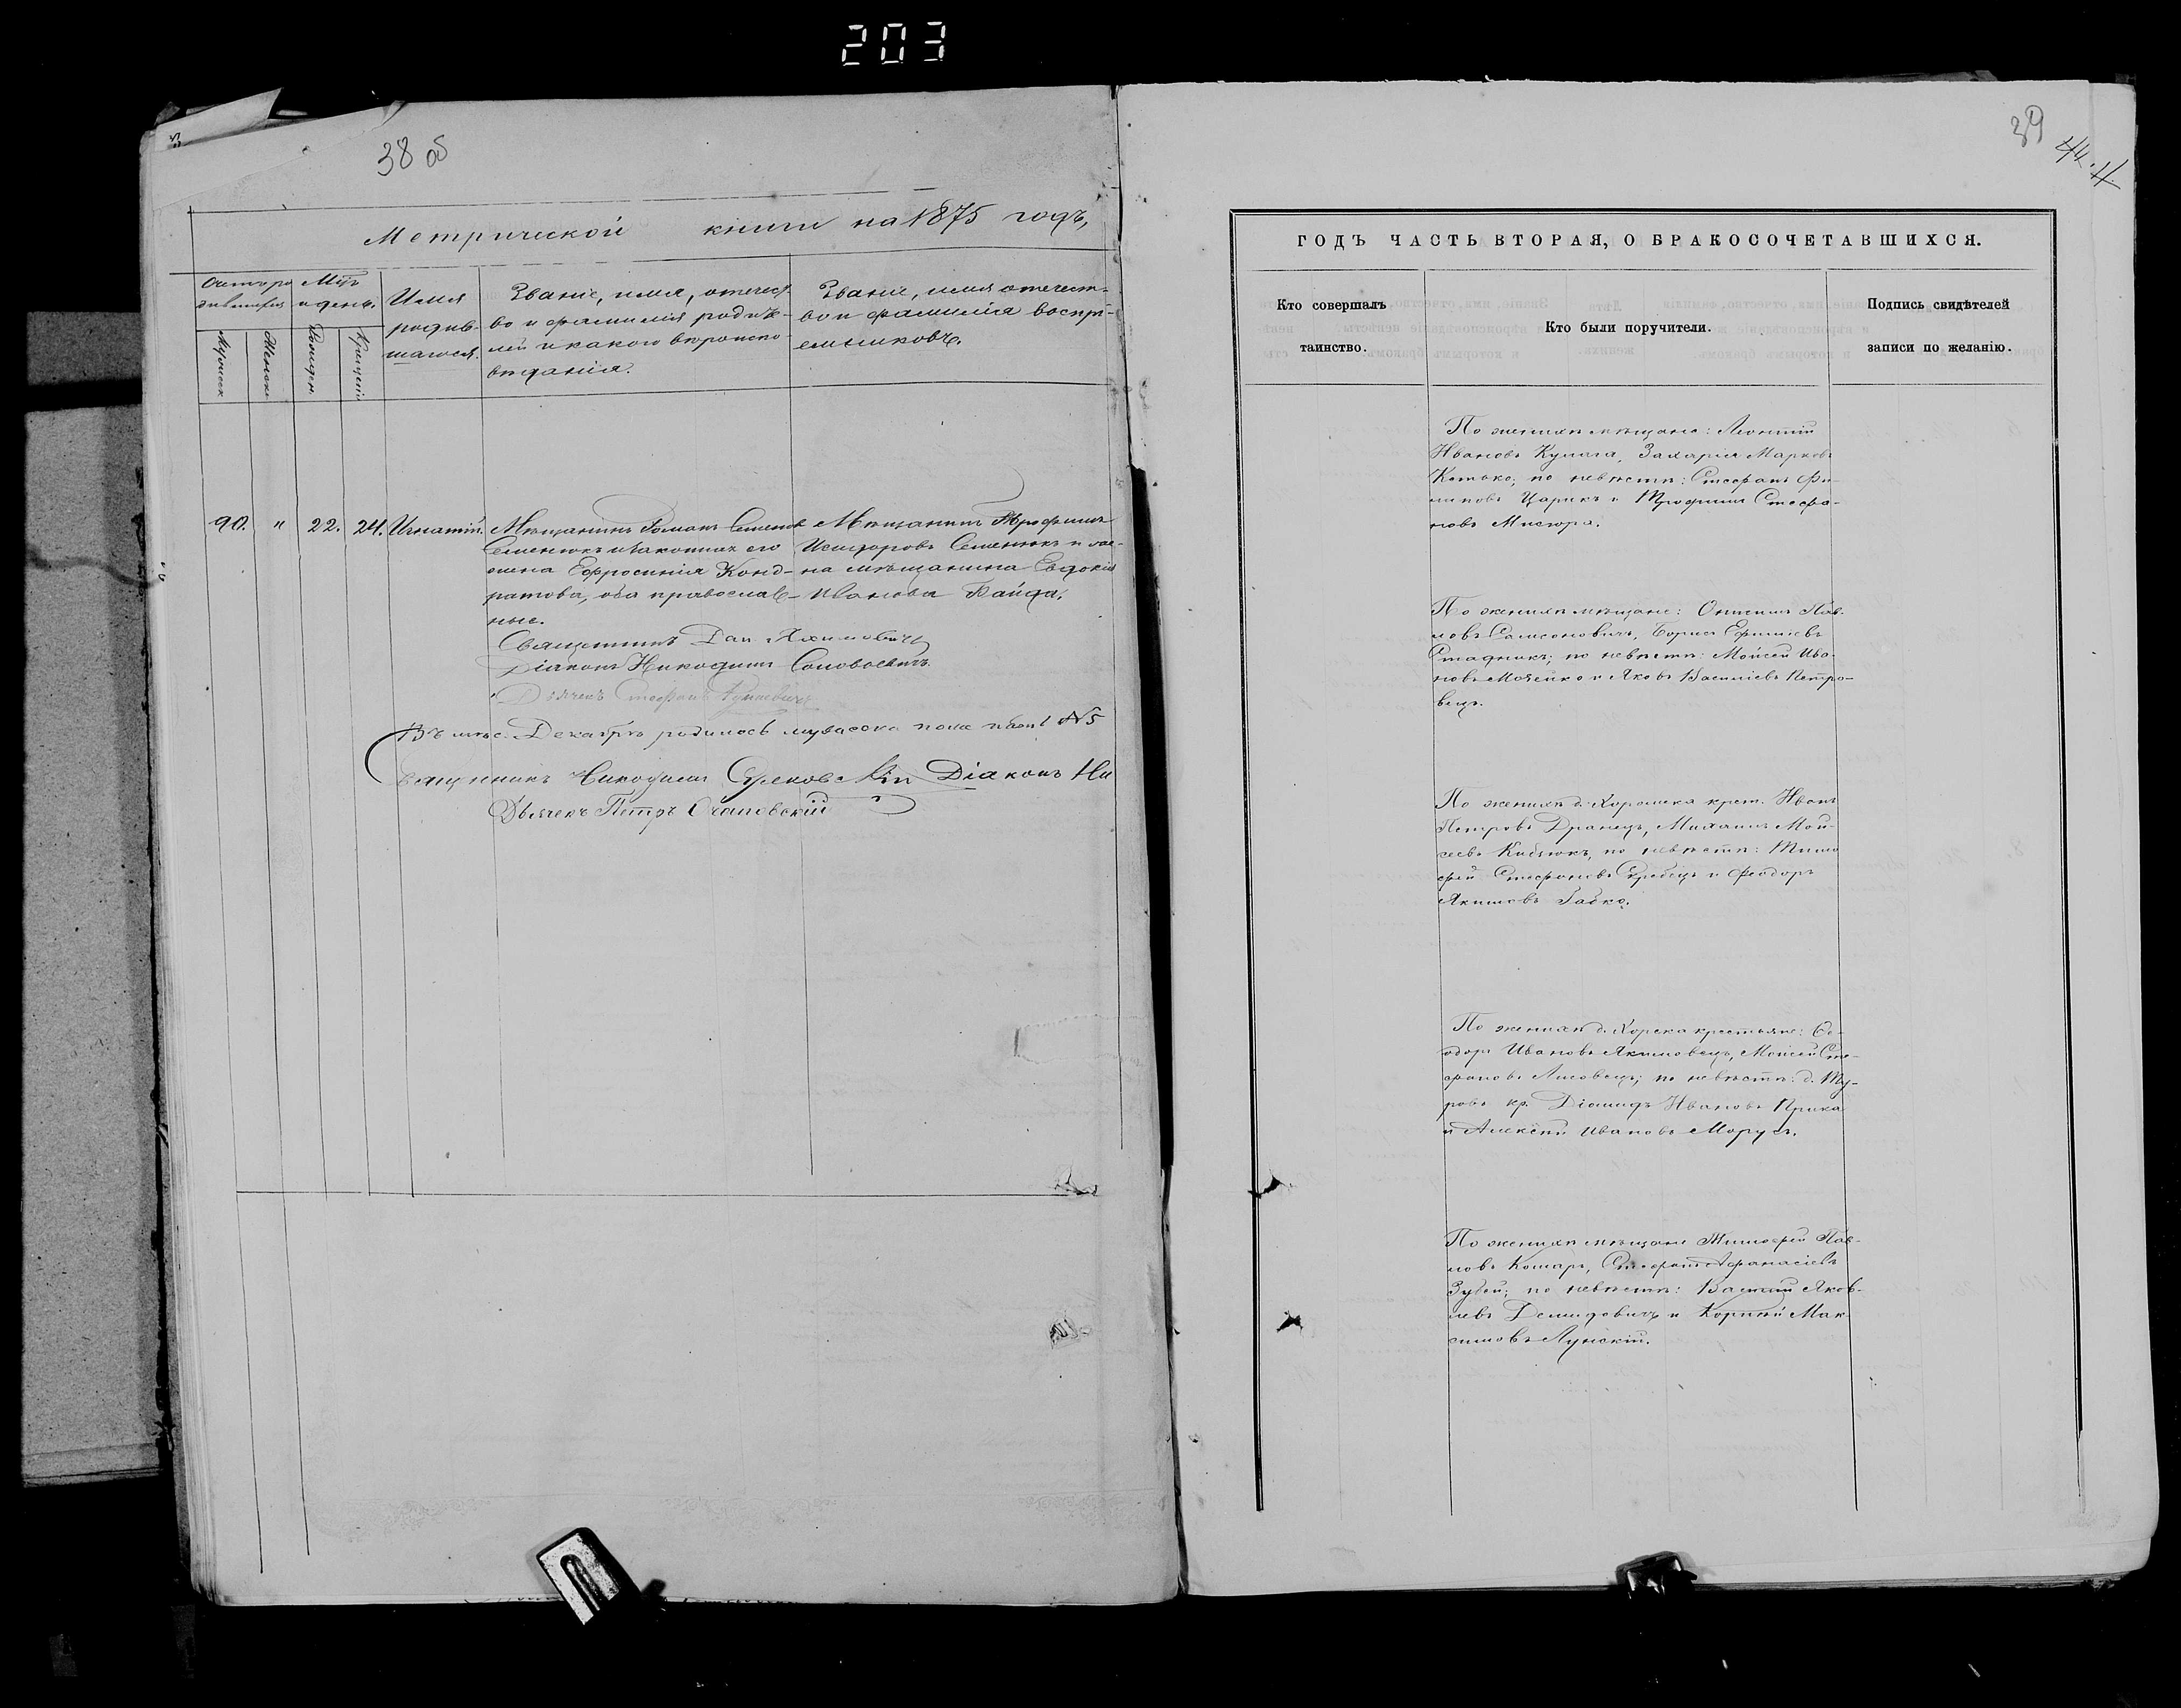 203
38 об
Метрической книги на 1875 годъ,
Счетъ ро Мцъ
дившихся и день.
Имя
родив-
шагося.
Званіе, имя, отечест-
во и фамилія родите-
лей и какого вѣроиспо-
вѣданія.
Званіе, имя отечест-
во и фамилія воспрі-
емниковъ.
Мужеск
Женск
Рожден.
Крещенія
90. " 22. 24. Игнатій.
Мѣщанинъ Романъ Семенов
Семенюкъ и законная его
жена Евфросинія Конд-
ратова, оба православ-
ные.
Мѣщанинъ Трофимъ
Исидоровъ Семенюкъ и же-
на мѣщанина Евдокія
Иванова Байда.
Священникъ Дан. Яхимовичъ
Діаконъ Никодимъ Соловьевичъ
Дьячекъ Стефанъ
Въ мѣс. Декабрѣ родилось мужаска пола №5
Священникъ Никодимъ Діаконъ Ни
Дьячекъ Петръ
39
44.
ГОДЪ ЧАСТЬ ВТОРАЯ, О БРАКОСОЧЕТАВШИХСЯ.
Кто совершалъ
таинство.
Кто были поручители.
Подпись свидѣтелей
записи по желанію.
По женихѣ мѣщане: Леонтій
Ивановъ Кулага, Захарія Марковъ
Котько; по невѣстѣ: Стефанъ Фи-
липовъ Царикъ и Трофимъ Стефа-
новъ Мисюра.
По женихѣ мѣщане: Онисимъ Пав-
ловъ Самсоновичъ, Борисъ Ефимовъ
Стадникъ; по невѣстѣ: Мойсей Ива-
новъ Мочейко и Яковъ Василіевъ Петро-
вецъ.
По женихѣ д. Хоромска крест. Иванъ
Петровъ Дранецъ, Михаилъ Мой-
сеевъ Кибзюкъ, по невѣстѣ: Тимо
фей Стефановъ и Феодоръ
Якимовъ Бабко.
По женихѣ д. Хорска крестьяне: Ѳе-
одоръ Ивановъ Якимовецъ, Мойсей Сте-
фановъ Лисовецъ; по невѣстѣ: д. Ту-
ровъ кр. Діамидъ Ивановъ Прика
и Алексѣй Ивановъ Морузъ.
По женихѣ мѣщане Тимофей Пав-
ловъ Комаръ, Стефанъ Афанасіевъ
Зубей; по невѣстѣ: Василій Яков-
левъ Демидовичъ и Корнѣй Мак
симовъ Лунскій.